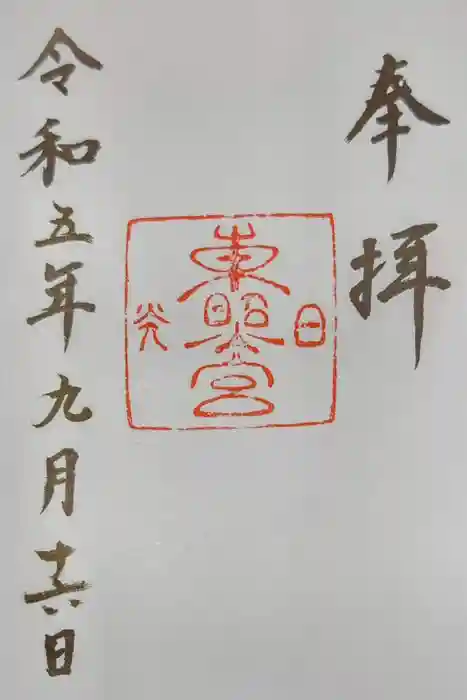 奉拝
日光
東照宮
令和五年九月十六日